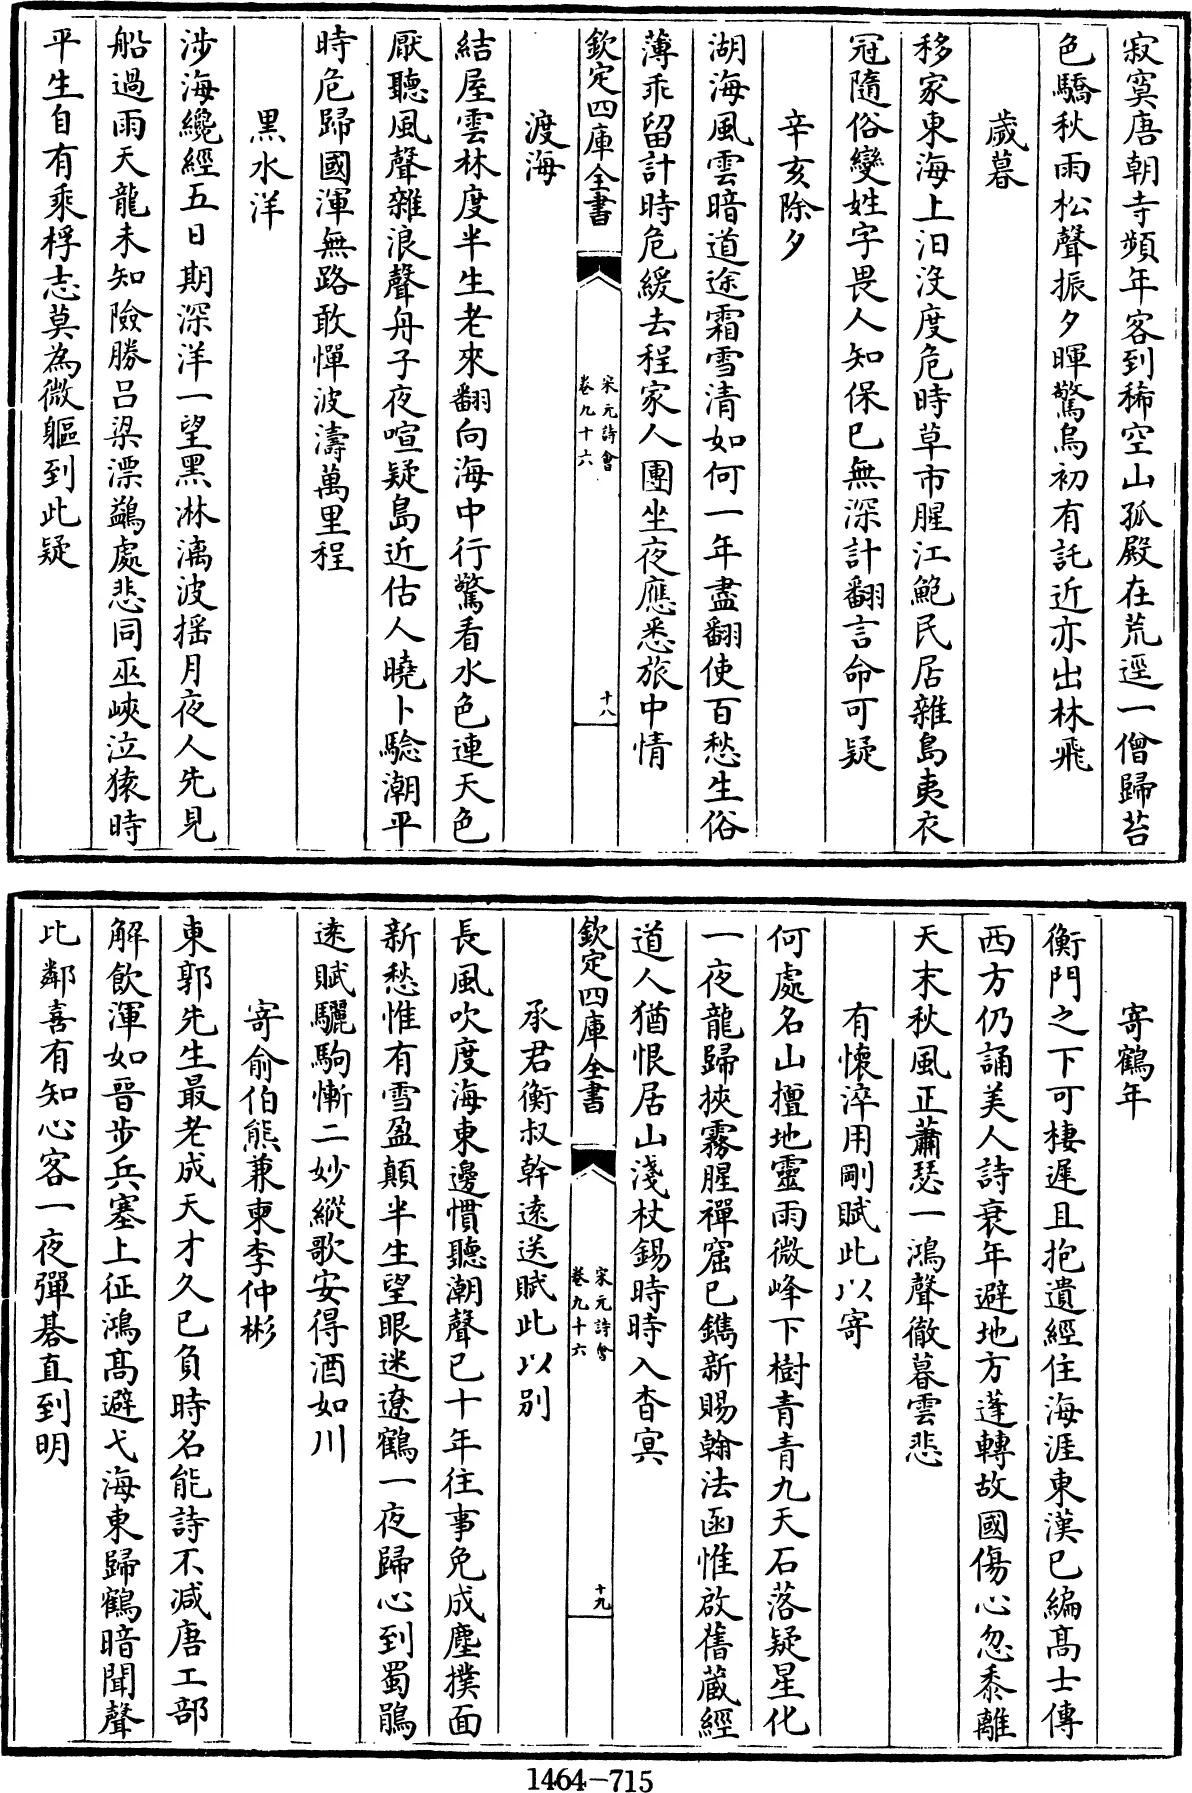 寂寞唐朝寺頻年客到稀空山孤殿在荒逕一僧歸苔
色驕秋雨松聲振夕暉驚烏初有託近亦出林飛
歲暮
移家東海上汨没度危時草市腥江鮑民居雜島夷衣
冠隨俗變姓字畏人知保已無深計翻言命可疑
辛亥除夕
湖海風雲暗道途霜雪清如何一年盡翻使百愁生俗
薄乖留計時危緩去程家人團坐夜應悉旅中情
欽定四庫全書
宋元詩會
卷九十六
十八
渡海
結屋雲林度半生老來翻向海中行驚看水色連天色
厭聽風聲雜浪聲舟子夜喧疑島近估人曉卜驗潮平
時危歸國渾無路敢憚波濤萬里程
黑水洋
涉海纔經五日期深洋一望黑淋漓波摇月夜人先見
船過雨天龍未知險勝呂梁漂鷁處悲同巫峽泣猿時
平生自有乘桴志莫為微軀到此疑
寄鶴年
衡門之下可棲遲且抱遺經住海涯東漢已編髙士傳
西方仍誦美人詩衰年避地方蓬轉故國傷心忽黍離
天末秋風正蕭瑟一鴻聲徹暮雲悲
有懷淬用剛賦此以寄
何處名山擅地靈雨微峰下樹青青九天石落疑星化
一夜龍歸挾霧腥禪窟已鐫新賜翰法函惟啟舊藏經
道人猶恨居山淺杖錫時時入杳冥
欽定四庫全書
宋元詩會
卷九十六
十九
承君衡叔幹逺送賦此以别
長風吹度海東邊慣聽潮聲已十年往事免成塵撲面
新愁惟有雪盈顛半生望眼迷遼鶴一夜歸心到蜀鵑
逺賦驪駒慚二妙縱歌安得酒如川
寄俞伯熊兼柬李仲彬
東郭先生最老成天才久已負時名能詩不减唐工部
解飲渾如晉步兵塞上征鴻髙避弋海東歸鶴暗聞聲
比鄰喜有知心客一夜彈碁直到明
1464-715